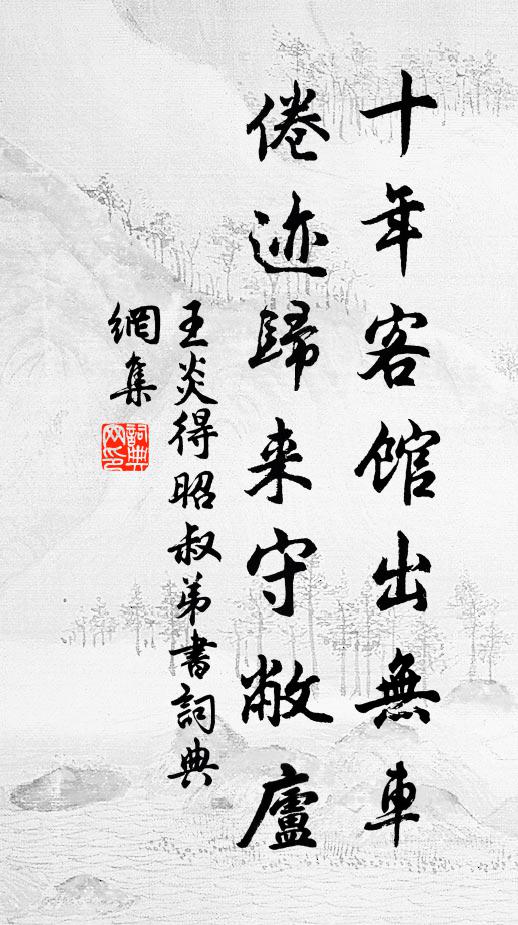 十年客館出無車
倦迹歸来守敝廬
王炎得昭叔弟書詞典
網集
詞典網印